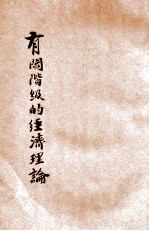 有閒階級的經濟理論